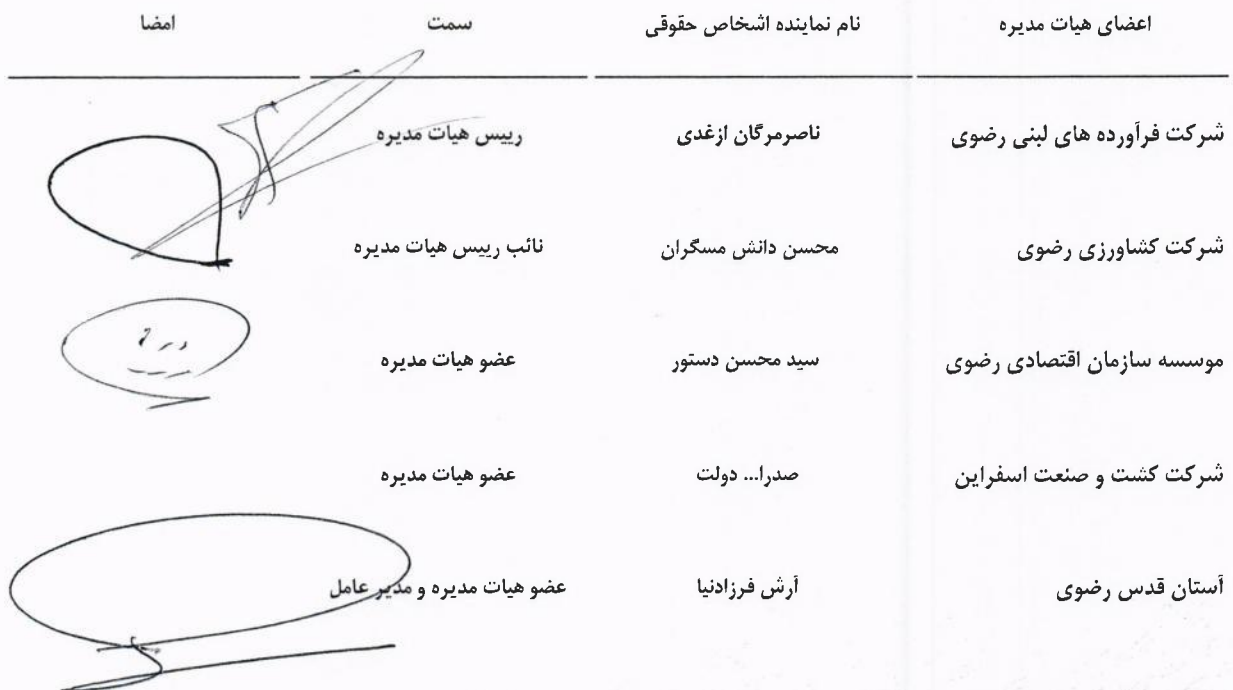 اعضای هیات مدیره نام نماینده اشخاص حقوقی سمت امضا
شرکت فرآورده های لبنی رضوی ناصرمرگان ازغدی رییس هیات مدیره
شرکت کشاورزی رضوی محسن دانش مسگران نائب رییس هیات مدیره
موسسه سازمان اقتصادی رضوی سید محسن دستور عضو هیات مدیره
شرکت کشت و صنعت اسفراین صدرا... دولت عضو هیات مدیره
آستان قدس رضوی آرش فرزادنیا عضو هیات مدیره و مدیر عامل